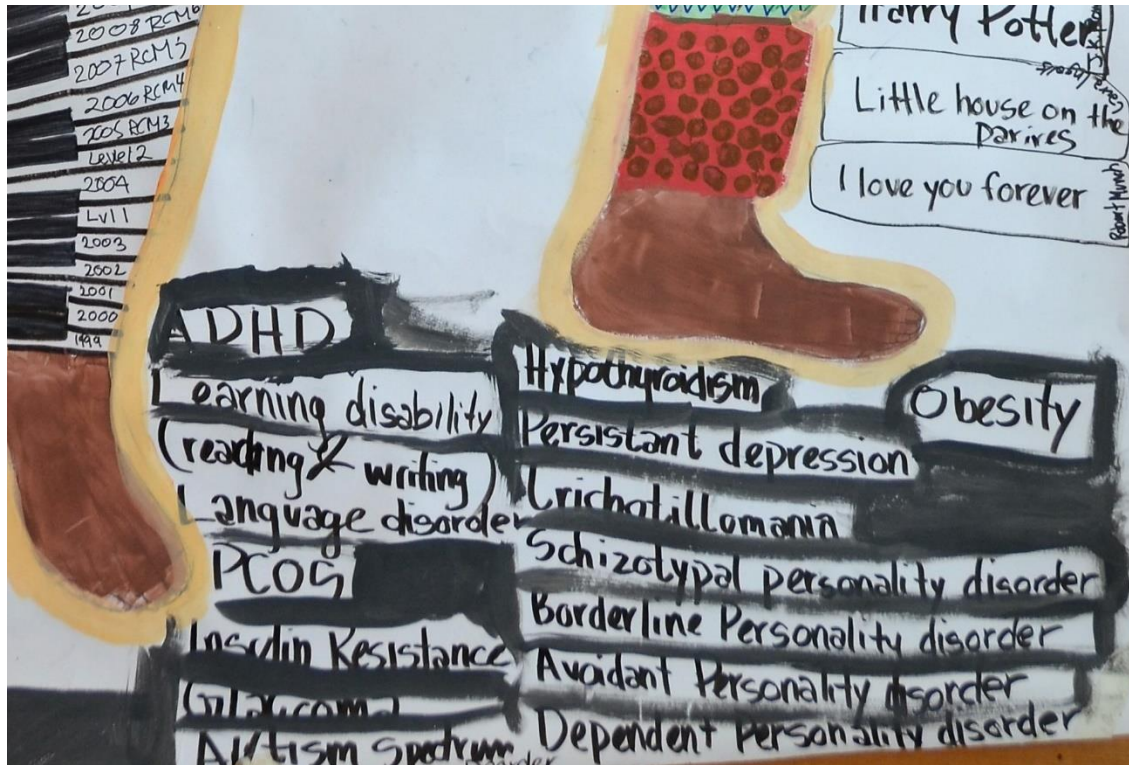 2008 RCM6
2007 RCM5
2006 RCM4
2005 RCM3
Level 2
2004
Lvl 1
2003
2002
2001
2000
1999
Harry Potter
Little house on the
parires
I love you forever
Robert Munch
ADHD
Learning disability
(reading & writing)
Language disorder
PCOS
Insulin Resistance
Glaucoma
Autism Spectrum
Hypothyroidism
Persistant depression
Trichotillomania
Schizotypal personality disorder
Borderline Personality disorder
Avoidant Personality disorder
Dependent Personality disorder
Obesity